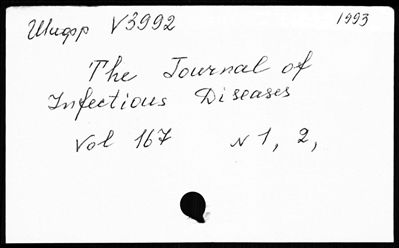 Шифр V3992 1993
The Journal of
Infectious Diseases
Vol 167 N 1, 2,